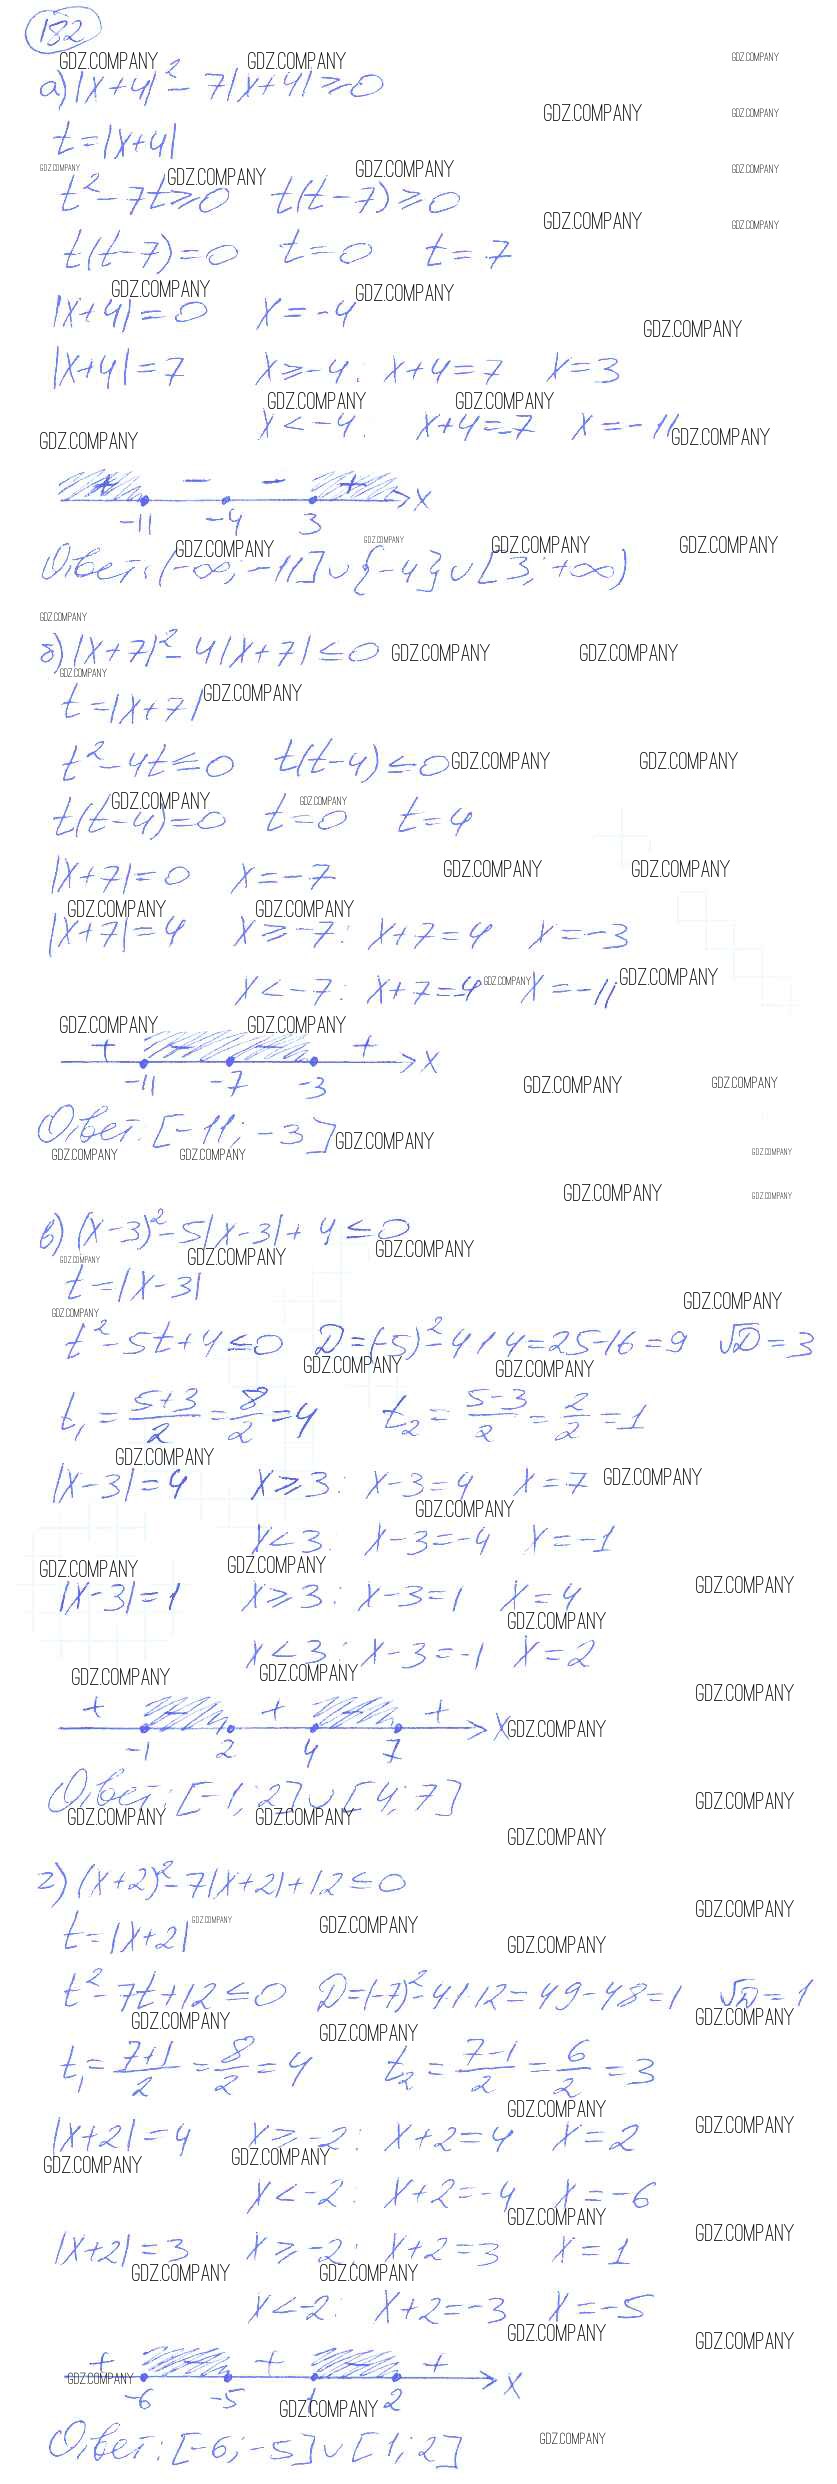 182
GDZ.COMPANY
а) |x+4|² - 7|x+4| ≥ 0
t = |x+4|
t² - 7t ≥ 0   t(t-7) ≥ 0
t(t-7) = 0   t = 0   t = 7
|x+4| = 0   x = -4
|x+4| = 7   x ≥ -4:   x+4 = 7   x = 3
x < -4:   x+4 = -7   x = -11
+ - - + x
-11 -4 3
Ответ: (-∞; -11] ∪ {-4} ∪ [3; +∞)
б) |x+7|² - 4|x+7| ≤ 0
t = |x+7|
t² - 4t ≤ 0   t(t-4) ≤ 0
t(t-4) = 0   t = 0   t = 4
|x+7| = 0   x = -7
|x+7| = 4   x ≥ -7:   x+7 = 4   x = -3
x < -7:   x+7 = -4   x = -11
+ - - + x
-11 -7 -3
Ответ: [-11; -3]
в) (x-3)² - 5|x-3| + 4 ≤ 0
t = |x-3|
t² - 5t + 4 ≤ 0   D = (-5)² - 4·1·4 = 25 - 16 = 9   √D = 3
t₁ = (5+3)/2 = 8/2 = 4   t₂ = (5-3)/2 = 2/2 = 1
|x-3| = 4   x ≥ 3:   x-3 = 4   x = 7
x < 3:   x-3 = -4   x = -1
|x-3| = 1   x ≥ 3:   x-3 = 1   x = 4
x < 3:   x-3 = -1   x = 2
+ - + - + x
-1 2 4 7
Ответ: [-1; 2] ∪ [4; 7]
г) (x+2)² - 7|x+2| + 12 ≤ 0
t = |x+2|
t² - 7t + 12 ≤ 0   D = (-7)² - 4·1·12 = 49 - 48 = 1   √D = 1
t₁ = (7+1)/2 = 8/2 = 4   t₂ = (7-1)/2 = 6/2 = 3
|x+2| = 4   x ≥ -2:   x+2 = 4   x = 2
x < -2:   x+2 = -4   x = -6
|x+2| = 3   x ≥ -2:   x+2 = 3   x = 1
x < -2:   x+2 = -3   x = -5
+ - + - + x
-6 -5 1 2
Ответ: [-6; -5] ∪ [1; 2]